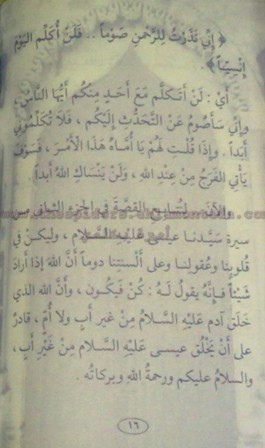 ﴿ إِنِّي نَذَرْتُ لِلرَّحْمنِ صَوْماً .. فَلَنْ أُكَلِّمَ اليَوْمَ
إِنْسِيّاً ﴾
أَيْ : لَنْ أَتَكَلَّمَ مَعَ أَحَدٍ مِنْكُم أَيُّهَا النَّاسُ ،
وإِنِّي سَأَصُومُ عَنْ التَّحَدُّثِ إِلَيْكُم ، فَلَا تُكَلِّمُونِي
أَبَداً . وإِذَا قُلْتِ لَهُمْ يَا أُمَّاهُ هَذَا الأَمْرَ ، فَسَوْفَ
يَأْتِي الفَرَجُ مِنْ عِنْدِ اللهِ ، وَلَنْ يَنْسَاكِ اللهُ أَبداً .
والآن لنتابع القِصَّةَ في الجزءِ الثاني من
سيرةِ سَيِّدنا عيسى عليه السَّلام ، وليكنْ في
قُلوبِنا وعُقولِنا وعلى أَلسنتِنا دوماً أَنَّ اللهَ إذا أرادَ
شَيْئاً فإِنَّهُ يقولُ لَهُ : كُنْ فَيكُون ، وأَنَّ اللهَ الذي
خَلَقَ آدمَ عَلَيْهِ السَّلامُ مِنْ غيرِ أبٍ ولا أُمٍّ ، قادرٌ
على أَنْ يَخْلُقَ عيسى عَلَيْهِ السَّلام مِنْ غَيْرِ أبٍ ،
والسلامُ عليكم ورحمةُ اللهِ وبركاتُه .
١٦